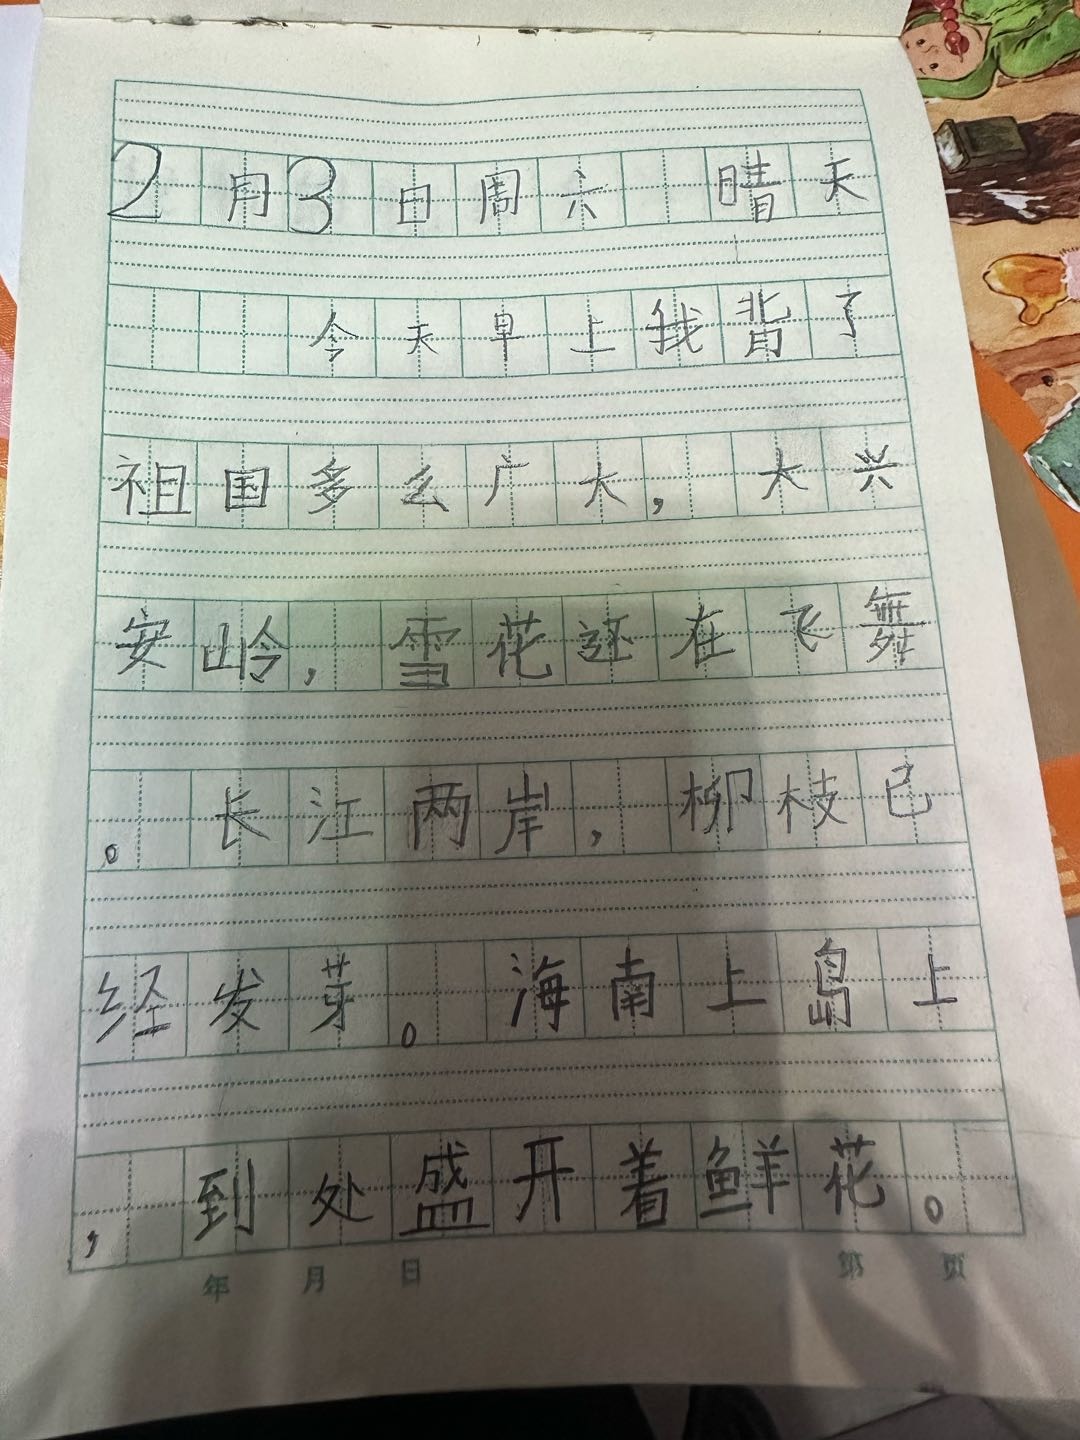 2月3日周六 晴天
今天早上我背了
祖国多么广大，大兴
安岭，雪花还在飞舞
。长江两岸，柳枝已
经发芽。海南上岛上
，到处盛开着鲜花。
年 月 日 第 页